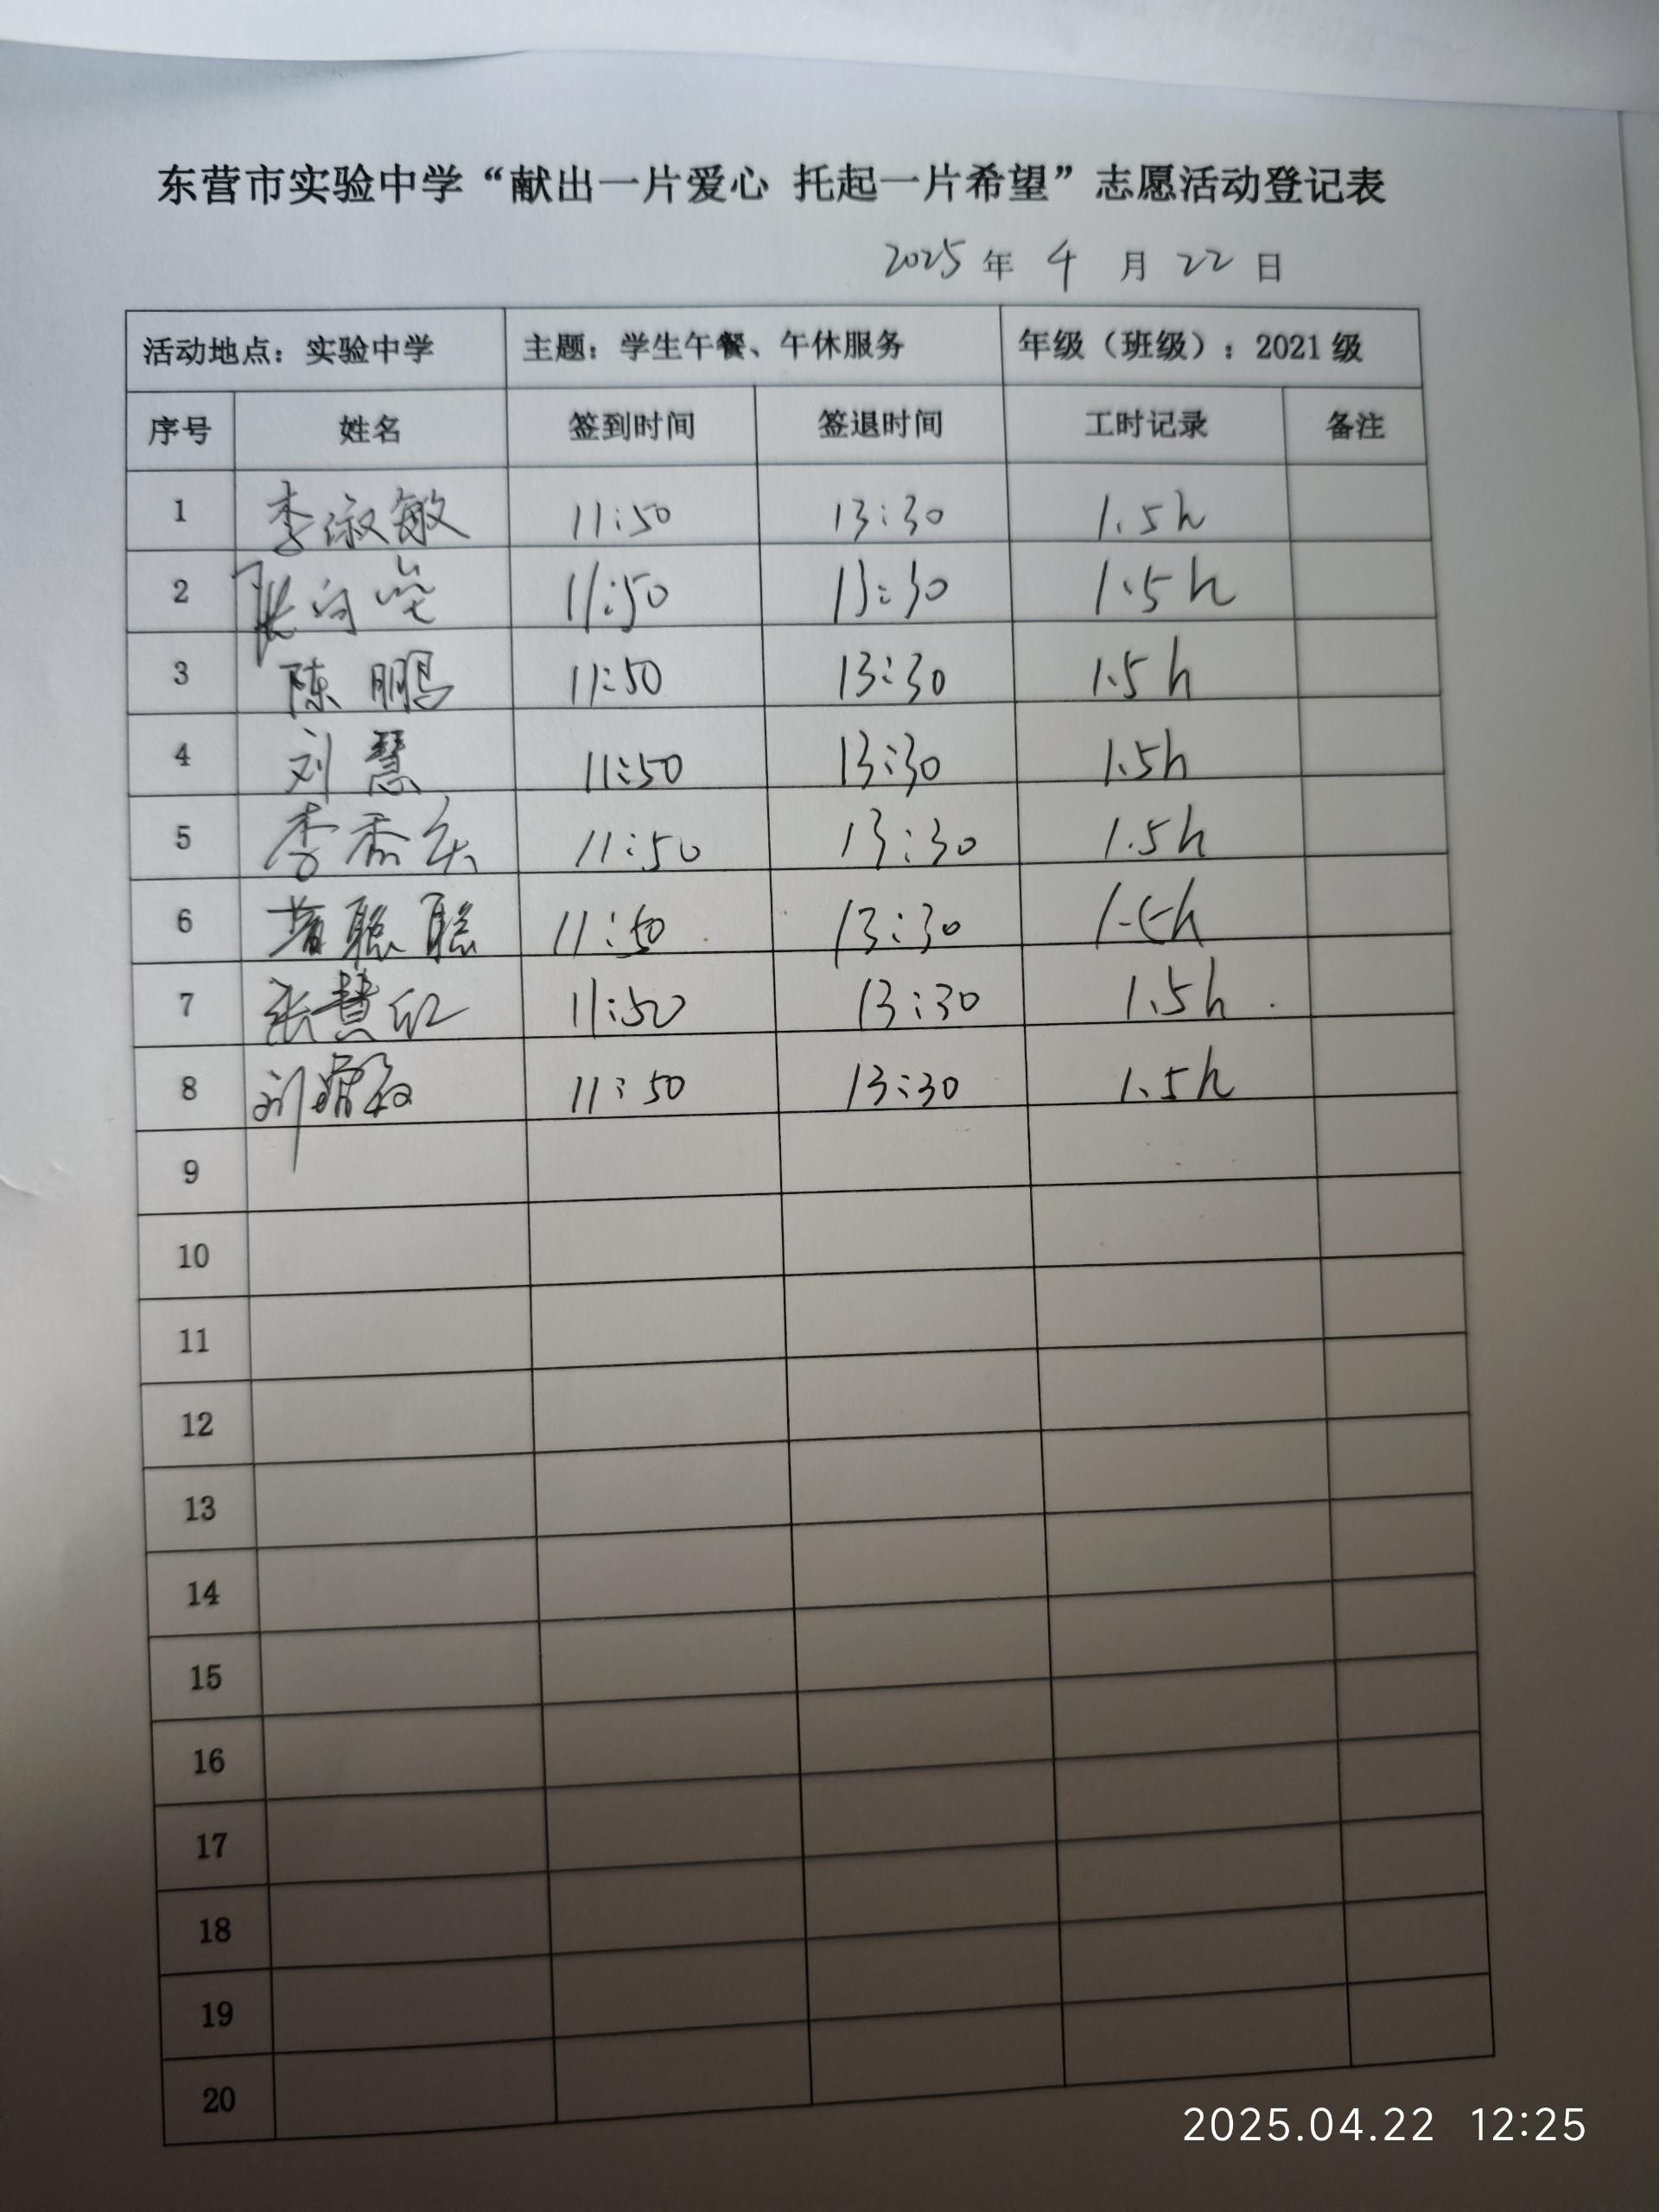 东营市实验中学“献出一片爱心 托起一片希望”志愿活动登记表
2025 年 4 月 22 日
活动地点：实验中学 主题：学生午餐、午休服务 年级（班级）：2021级
序号 姓名 签到时间 签退时间 工时记录 备注
1 李淑敏 11:50 13:30 1.5h
2 张向 11:50 13:30 1.5h
3 陈鹏 11:50 13:30 1.5h
4 刘慧 11:50 13:30 1.5h
5 李 11:50 13:30 1.5h
6 聪聪 11:50 13:30 1.5h
7 张慧红 11:50 13:30 1.5h
8 刘 11:50 13:30 1.5h
9
10
11
12
13
14
15
16
17
18
19
20
2025.04.22 12:25